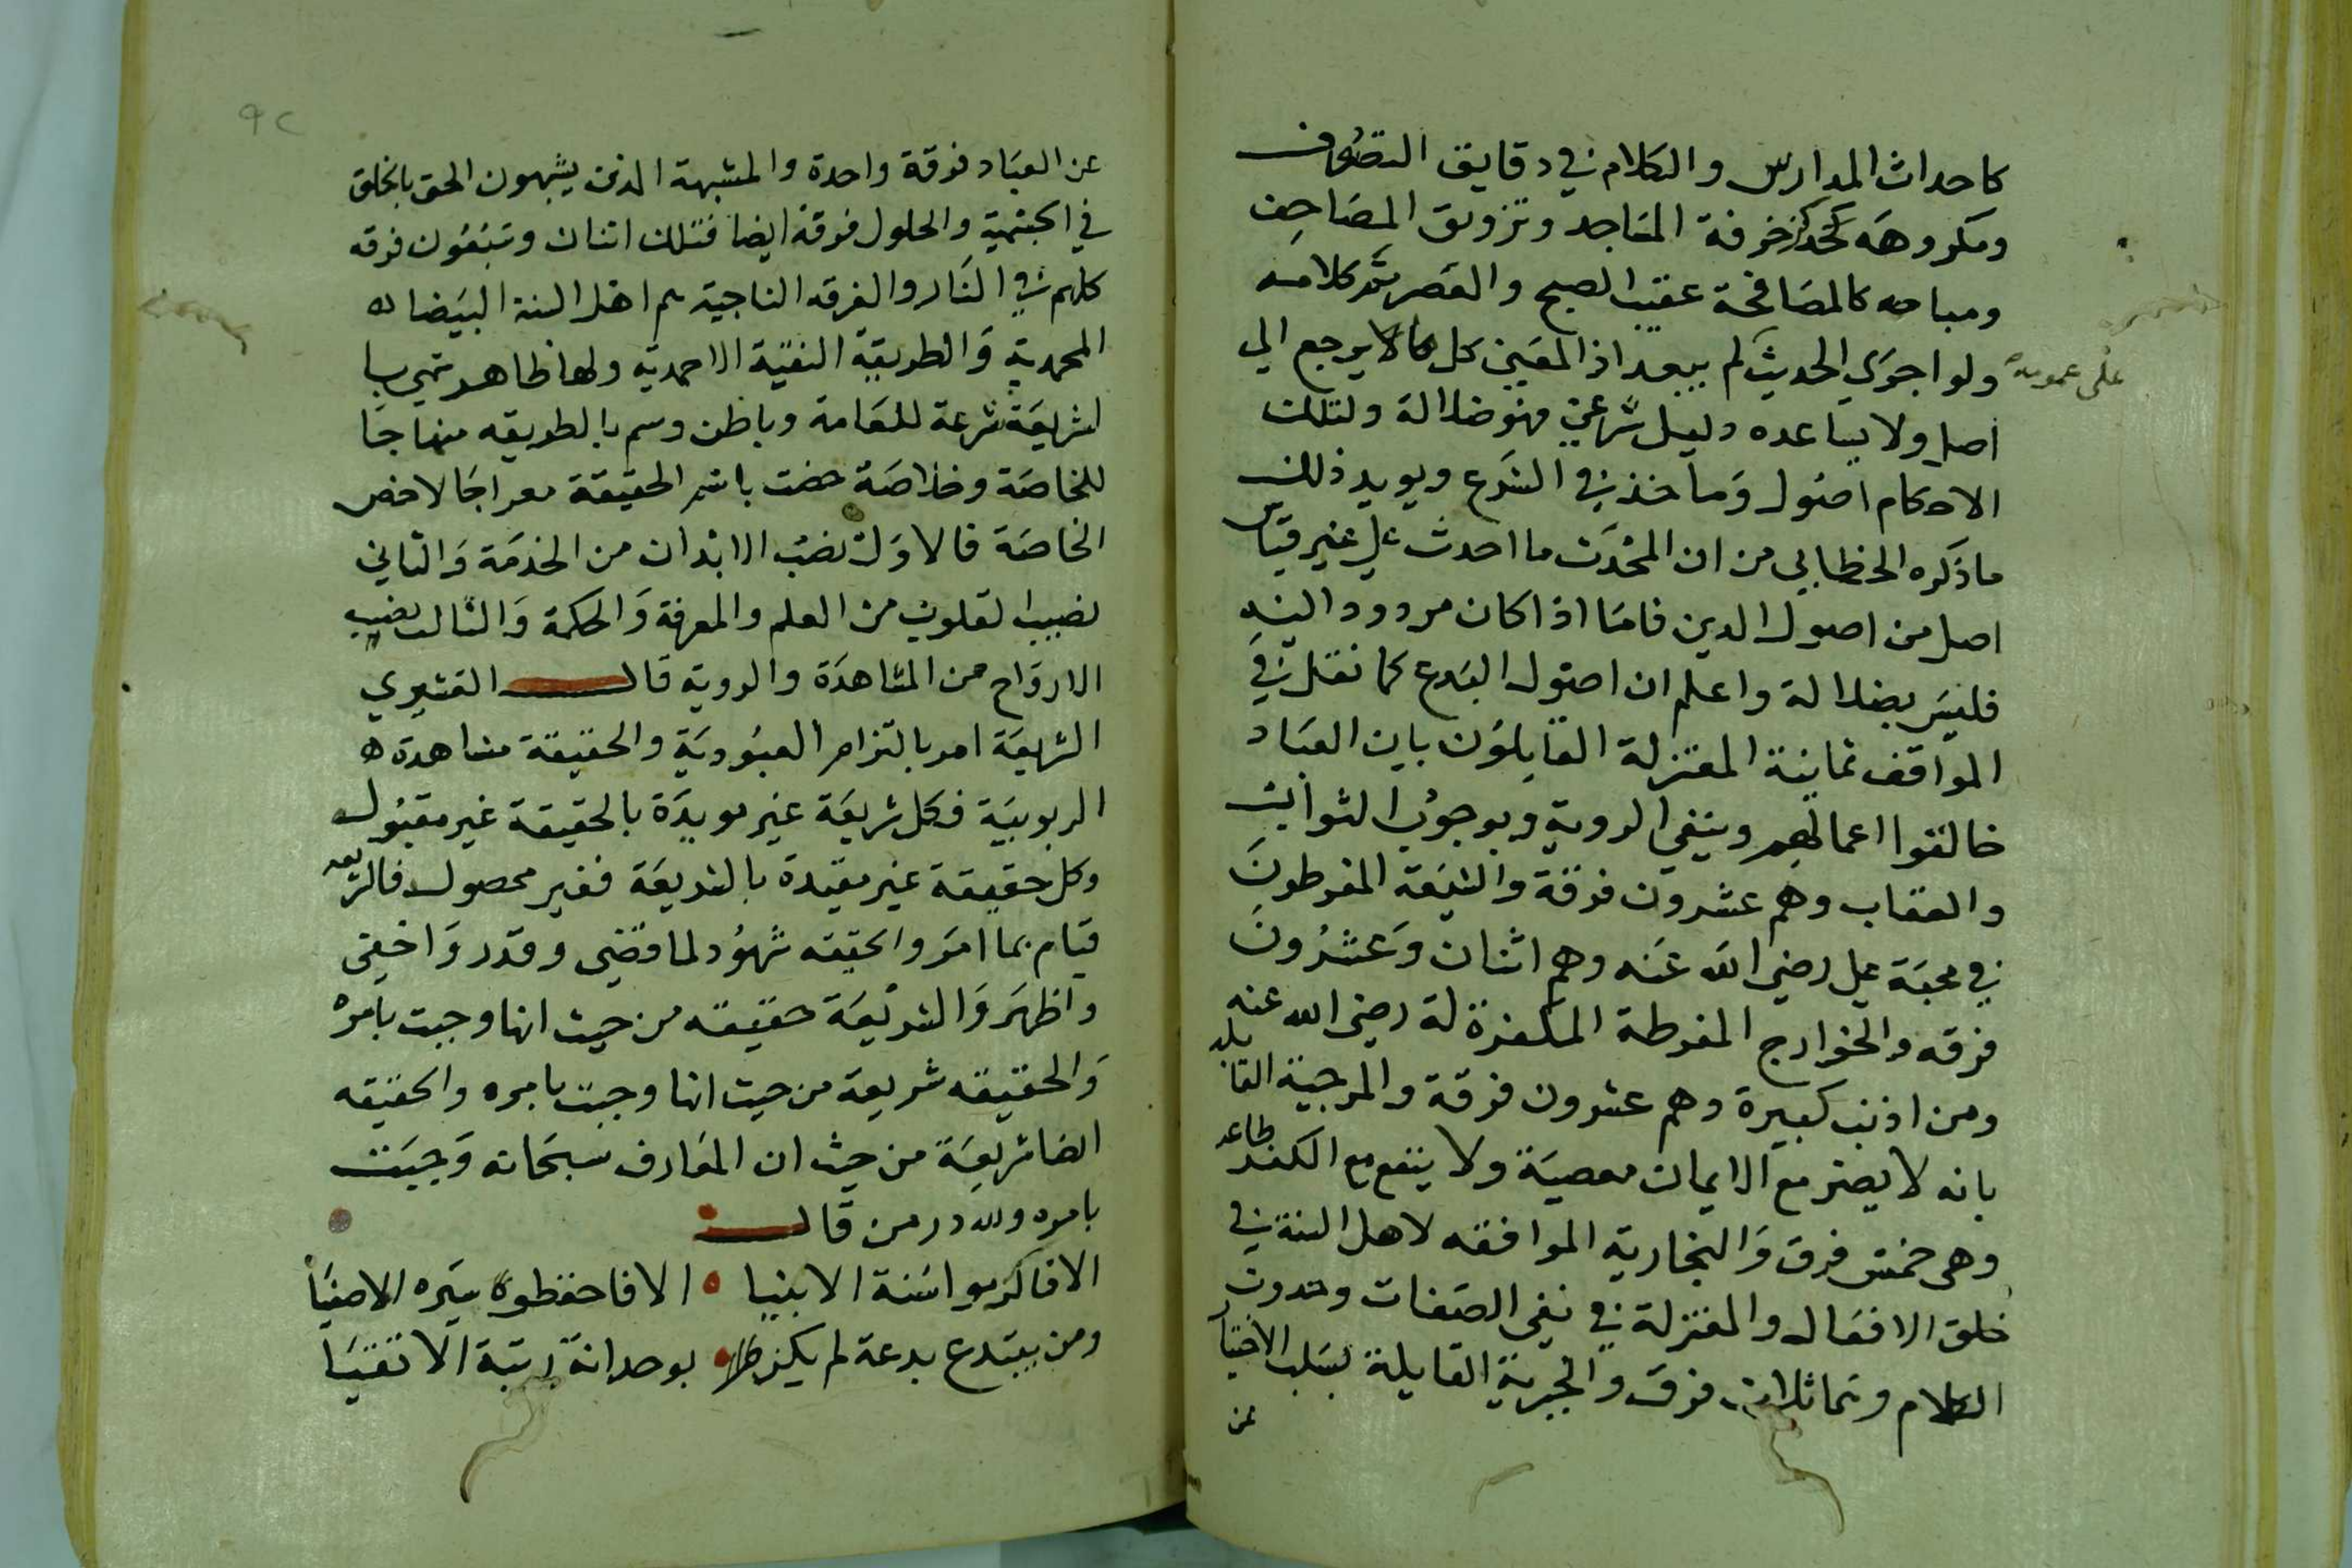 كاحداث المدارس والكلام في دقايق التصوف
ومكروهه كزخرفة المساجد وتزويق المصاحف
ومباحه كالمصافحة عقيب الصبح والعصر ثم كلامه
على عمومه
ولو اجري الحديث لم يبعد اذ المعني كل ما لا يرجع الي
اصل ولا يساعده دليل شرعي فهو ضلالة ولتلك
الاحكام اصول وماخذ في الشرع ويويد ذلك
ما ذكره الخطابي من ان المحدث ما احدث علي غير قياس
اصل من اصول الدين فاما اذا كان مردودا اليه
فليس بضلالة واعلم ان اصول البدع كما نقل في
المواقف ثمانية المعتزلة القايلون بان العباد
خالقوا اعمالهم وبنفي الروية وبوجوب الثواب
والعقاب وهم عشرون فرقة والشيعة المفرطون
في محبة علي رضي الله عنه وهم اثنان وعشرون
فرقه والخوارج المفرطة المكفرة له رضي الله عنه
ومن اذنب كبيرة وهم عشرون فرقة والمرجية القايله
بانه لا يضر مع الايمان معصية ولا ينفع مع الكفر طاعه
وهي خمس فرق والنجارية الموافقه لاهل السنة في
خلق الافعال والمعتزلة في نفي الصفات وحدوث
الكلام وهم ثلاث فرق والجبرية القايلة بسلب الاختيا
عن
٩٢
عن العباد فرقة واحدة والمشبهة الذين يشبهون الحق بالخلق
في الجسمية والحلول فرقة ايضا فتلك اثنان وسبعون فرقه
كلهم في النار والفرقه الناجية هم اهل السنة البيضا ه
المحمدية والطريقة النقية الاحمدية ولها ظاهر سمي با
لشريعة شرعة للعامة وباطن وسم بالطريقه منهاجا
للخاصة وخلاصة خصت باسم الحقيقة معراجا لاخص
الخاصة فالاول نصيب الابدان من الخدمة والثاني
نصيب القلوب من العلم والمعرفة والحكمة والثالث نصيب
الارواح من المشاهدة والروية قال القشيري
الشريعة امر بالتزام العبودية والحقيقة مشاهدة ه
الربوبية فكل شريعة غير مويدة بالحقيقة غير مقبول
وكل حقيقة غير مقيدة بالشريعة فغير محصول فالشريعه
قيام بما امر والحقيقه شهود لما قضي وقدر واخفي
واظهر والشريعة حقيقه من حيث انها وجبت بامره
والحقيقه شريعة من حيث انها وجبت بامره والحقيقه
ايضا شريعة من حيث ان المعارف سبحانه وجبت
بامره ولله در من قال
الا فاكرموا سنة الانبيا ه الا فاحفظوا سيره الاصفيا
ومن يبتدع بدعة لم يكن بوحدانة رتبة الاتقيا